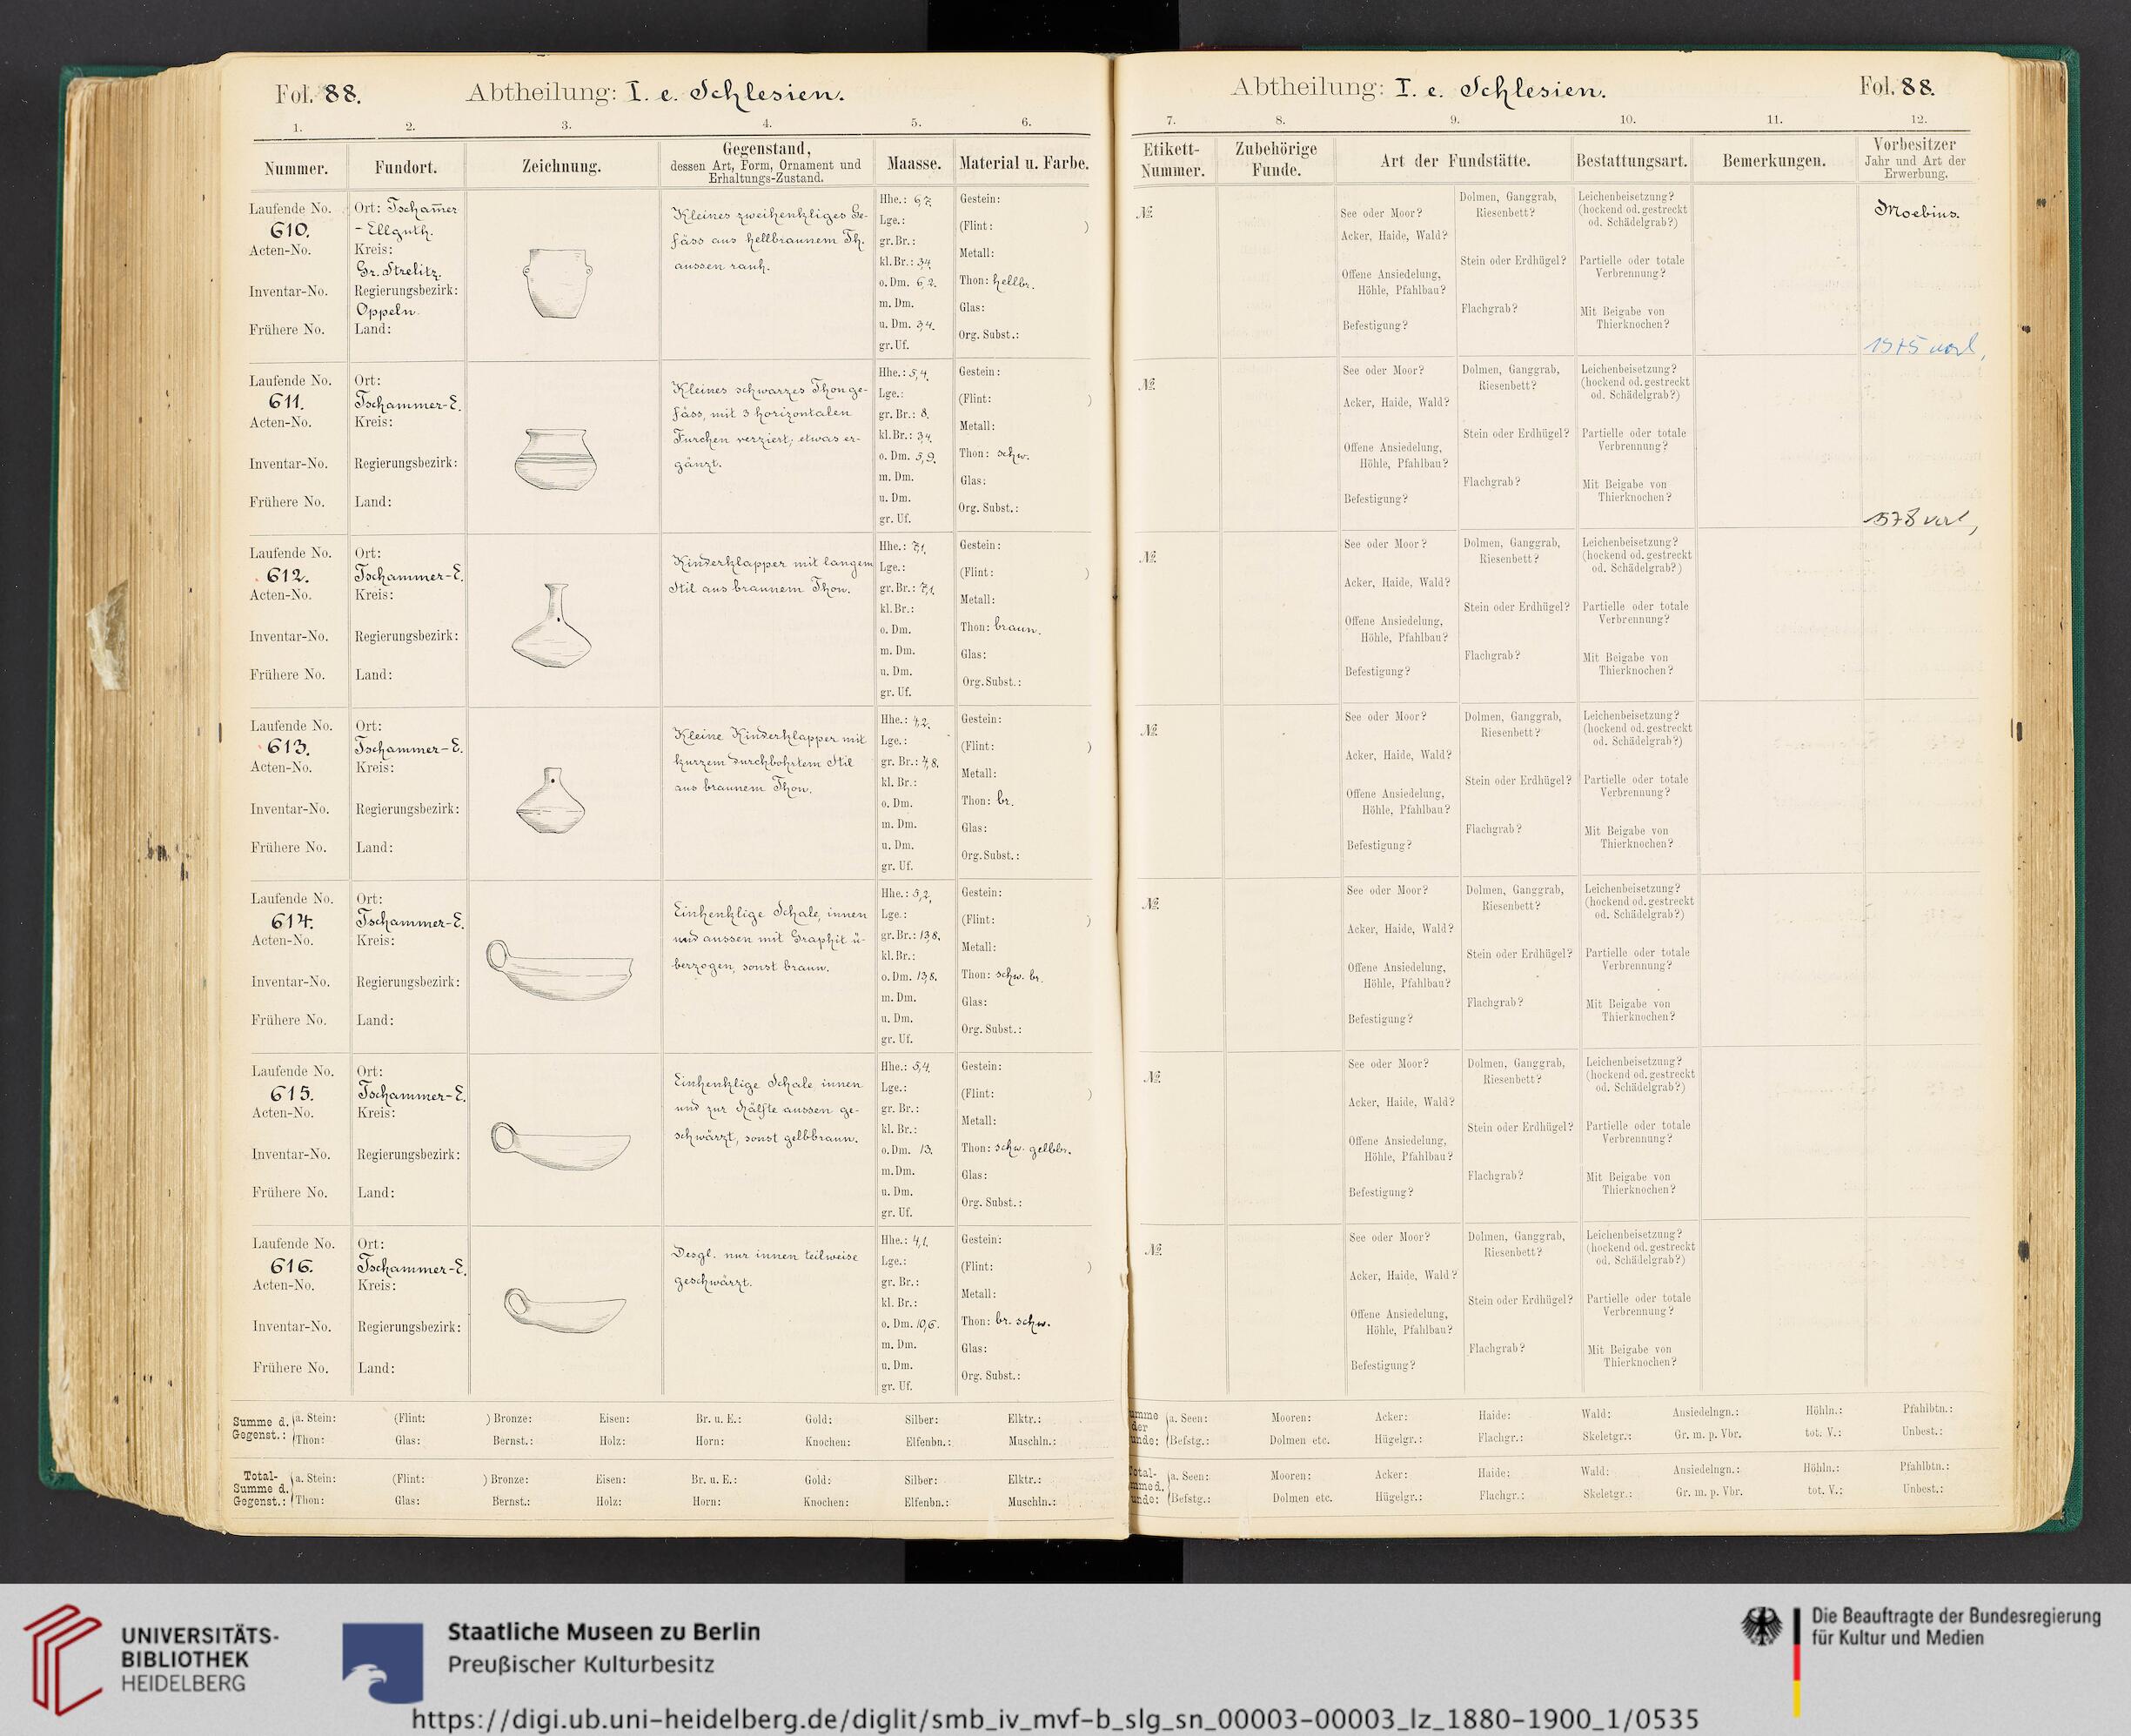 Fol. 88.
Abtheilung: I. e. Schlesien.
1. 2. 3. 4. 5. 6.
Nummer. Fundort. Zeichnung. Gegenstand, dessen Art, Form, Ornament und Erhaltungs-Zustand. Maasse. Material u. Farbe.
Laufende No.
610.
Acten-No.
Inventar-No.
Frühere No.
Ort: Tscham̄er
- Ellguth.
Kreis:
Gr. Strelitz.
Regierungsbezirk:
Oppeln.
Land:
Kleines zweihenkliges Ge-
fäss aus hellbraunem Th.
aussen rauh.
Hhe.: 6,7.
Lge.:
gr. Br.:
kl. Br.: 3,4.
o. Dm. 6,2.
m. Dm.
u. Dm. 3,4.
gr. Uf.
Gestein:
(Flint: )
Metall:
Thon: hellbr.
Glas:
Org. Subst.:
Laufende No.
611.
Acten-No.
Inventar-No.
Frühere No.
Ort:
Tschammer-E.
Kreis:
Regierungsbezirk:
Land:
Kleines schwarzes Thonge-
fäss, mit 3 horizontalen
Furchen verziert; etwas er-
gänzt.
Hhe.: 5,4.
Lge.:
gr. Br.: 8.
kl. Br.: 3,4.
o. Dm. 5,9.
m. Dm.
u. Dm.
gr. Uf.
Gestein:
(Flint: )
Metall:
Thon: schw.
Glas:
Org. Subst.:
Laufende No.
612.
Acten-No.
Inventar-No.
Frühere No.
Ort:
Tschammer-E.
Kreis:
Regierungsbezirk:
Land:
Kinderklapper mit langem
Stil aus braunem Thon.
Hhe.: 7,1.
Lge.:
gr. Br.: 7,1.
kl. Br.:
o. Dm.
m. Dm.
u. Dm.
gr. Uf.
Gestein:
(Flint: )
Metall:
Thon: braun.
Glas:
Org. Subst.:
Laufende No.
613.
Acten-No.
Inventar-No.
Frühere No.
Ort:
Tschammer-E.
Kreis:
Regierungsbezirk:
Land:
Kleine Kinderklapper mit
kurzem durchbohrtem Stil
aus braunem Thon.
Hhe.: 4,2.
Lge.:
gr. Br.: 4,8.
kl. Br.:
o. Dm.
m. Dm.
u. Dm.
gr. Uf.
Gestein:
(Flint: )
Metall:
Thon: br.
Glas:
Org. Subst.:
Laufende No.
614.
Acten-No.
Inventar-No.
Frühere No.
Ort:
Tschammer-E.
Kreis:
Regierungsbezirk:
Land:
Einhenklige Schale, innen
und aussen mit Graphit ü-
berzogen, sonst braun.
Hhe.: 5,2.
Lge.:
gr. Br.: 13,8.
kl. Br.:
o. Dm. 13,8.
m. Dm.
u. Dm.
gr. Uf.
Gestein:
(Flint: )
Metall:
Thon: schw. br.
Glas:
Org. Subst.:
Laufende No.
615.
Acten-No.
Inventar-No.
Frühere No.
Ort:
Tschammer-E.
Kreis:
Regierungsbezirk:
Land:
Einhenklige Schale, innen
und zur Hälfte aussen ge-
schwärzt, sonst gelbbraun.
Hhe.: 5,4.
Lge.:
gr. Br.:
kl. Br.:
o. Dm. 13.
m. Dm.
u. Dm.
gr. Uf.
Gestein:
(Flint: )
Metall:
Thon: schw. gelbbr.
Glas:
Org. Subst.:
Laufende No.
616.
Acten-No.
Inventar-No.
Frühere No.
Ort:
Tschammer-E.
Kreis:
Regierungsbezirk:
Land:
Desgl. nur innen teilweise
geschwärzt.
Hhe.: 4,1.
Lge.:
gr. Br.:
kl. Br.:
o. Dm. 10,6.
m. Dm.
u. Dm.
gr. Uf.
Gestein:
(Flint: )
Metall:
Thon: br. schw.
Glas:
Org. Subst.:
Summe d. Gegenst.: a. Stein: (Flint: ) Bronze: Eisen: Br. u. E.: Gold: Silber: Elktr.:
Thon: Glas: Bernst.: Holz: Horn: Knochen: Elfenbn.: Muschln.:
Total-Summe d. Gegenst.: a. Stein: (Flint: ) Bronze: Eisen: Br. u. E.: Gold: Silber: Elktr.:
Thon: Glas: Bernst.: Holz: Horn: Knochen: Elfenbn.: Muschln.:
Abtheilung: I. e. Schlesien.
Fol. 88.
7. 8. 9. 10. 11. 12.
Etikett-Nummer. Zubehörige Funde. Art der Fundstätte. Bestattungsart. Bemerkungen. Vorbesitzer Jahr und Art der Erwerbung.
№
See oder Moor?
Acker, Haide, Wald?
Offene Ansiedelung,
Höhle, Pfahlbau?
Befestigung?
Dolmen, Ganggrab,
Riesenbett?
Stein oder Erdhügel?
Flachgrab?
Leichenbeisetzung?
(hockend od. gestreckt
od. Schädelgrab?)
Partielle oder totale
Verbrennung?
Mit Beigabe von
Thierknochen?
Moebius.
№
See oder Moor?
Acker, Haide, Wald?
Offene Ansiedelung,
Höhle, Pfahlbau?
Befestigung?
Dolmen, Ganggrab,
Riesenbett?
Stein oder Erdhügel?
Flachgrab?
Leichenbeisetzung?
(hockend od. gestreckt
od. Schädelgrab?)
Partielle oder totale
Verbrennung?
Mit Beigabe von
Thierknochen?
№
See oder Moor?
Acker, Haide, Wald?
Offene Ansiedelung,
Höhle, Pfahlbau?
Befestigung?
Dolmen, Ganggrab,
Riesenbett?
Stein oder Erdhügel?
Flachgrab?
Leichenbeisetzung?
(hockend od. gestreckt
od. Schädelgrab?)
Partielle oder totale
Verbrennung?
Mit Beigabe von
Thierknochen?
№
See oder Moor?
Acker, Haide, Wald?
Offene Ansiedelung,
Höhle, Pfahlbau?
Befestigung?
Dolmen, Ganggrab,
Riesenbett?
Stein oder Erdhügel?
Flachgrab?
Leichenbeisetzung?
(hockend od. gestreckt
od. Schädelgrab?)
Partielle oder totale
Verbrennung?
Mit Beigabe von
Thierknochen?
№
See oder Moor?
Acker, Haide, Wald?
Offene Ansiedelung,
Höhle, Pfahlbau?
Befestigung?
Dolmen, Ganggrab,
Riesenbett?
Stein oder Erdhügel?
Flachgrab?
Leichenbeisetzung?
(hockend od. gestreckt
od. Schädelgrab?)
Partielle oder totale
Verbrennung?
Mit Beigabe von
Thierknochen?
№
See oder Moor?
Acker, Haide, Wald?
Offene Ansiedelung,
Höhle, Pfahlbau?
Befestigung?
Dolmen, Ganggrab,
Riesenbett?
Stein oder Erdhügel?
Flachgrab?
Leichenbeisetzung?
(hockend od. gestreckt
od. Schädelgrab?)
Partielle oder totale
Verbrennung?
Mit Beigabe von
Thierknochen?
№
See oder Moor?
Acker, Haide, Wald?
Offene Ansiedelung,
Höhle, Pfahlbau?
Befestigung?
Dolmen, Ganggrab,
Riesenbett?
Stein oder Erdhügel?
Flachgrab?
Leichenbeisetzung?
(hockend od. gestreckt
od. Schädelgrab?)
Partielle oder totale
Verbrennung?
Mit Beigabe von
Thierknochen?
umme der unde: a. Seen: Mooren: Acker: Haide: Wald: Ansiedelngn.: Höhln.: Pfahlbtn.:
Befstg.: Dolmen etc. Hügelgr.: Flachgr.: Skeletgr.: Gr. m. p. Vbr. tot. V.: Unbest.:
otal- mme d. unde: a. Seen: Mooren: Acker: Haide: Wald: Ansiedelngn.: Höhln.: Pfahlbtn.:
Befstg.: Dolmen etc. Hügelgr.: Flachgr.: Skeletgr.: Gr. m. p. Vbr. tot. V.: Unbest.:
UNIVERSITÄTS-
BIBLIOTHEK
HEIDELBERG
Staatliche Museen zu Berlin
Preußischer Kulturbesitz
Die Beauftragte der Bundesregierung
für Kultur und Medien
https://digi.ub.uni-heidelberg.de/diglit/smb_iv_mvf-b_slg_sn_00003-00003_lz_1880-1900_1/0535